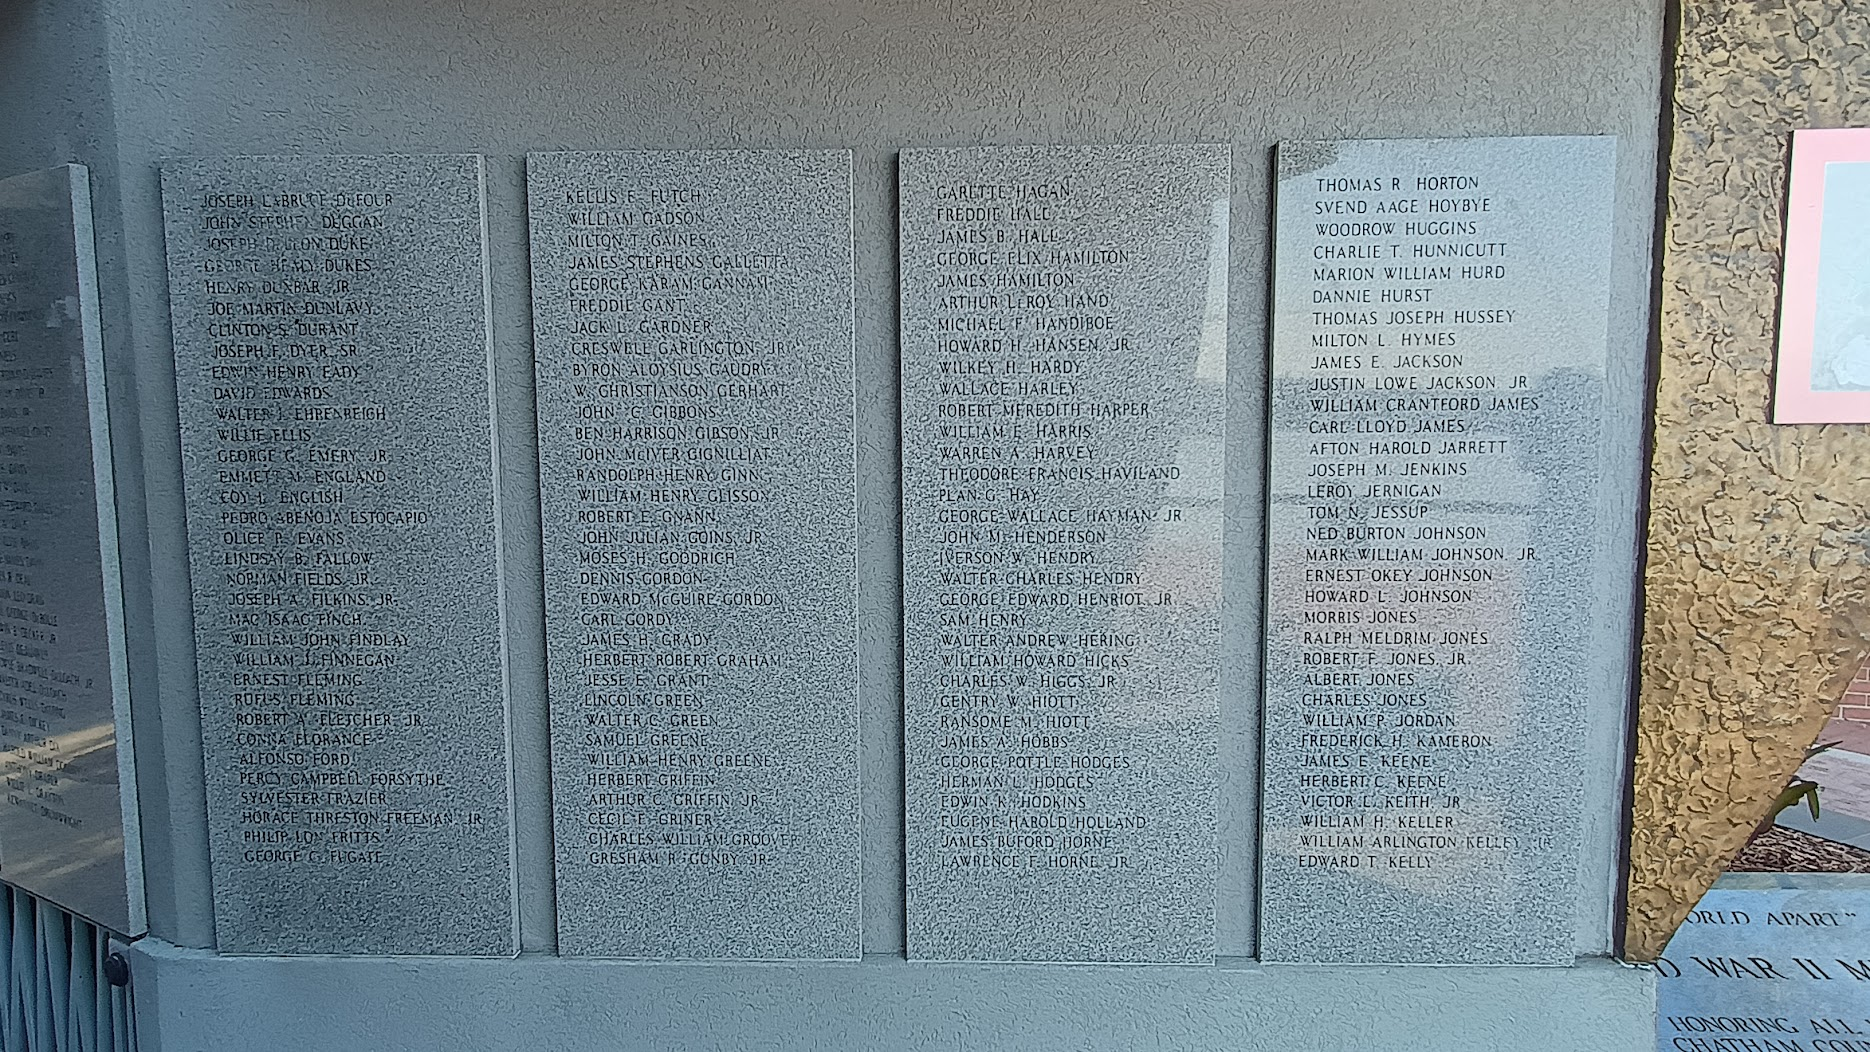 JOSEPH LABRUCE DUFOUR
JOHN STEPHEN DUGGAN
JOSEPH D. LEON DUKE
GEORGE HEALY DUKES
HENRY DUNBAR, JR.
JOE MARTIN DUNLAVY
CLINTON S. DURANT
JOSEPH F. DYER, SR.
EDWIN HENRY EADY
DAVID EDWARDS
WALTER J. EHRENREICH
WILLIE ELLIS
GEORGE G. EMERY, JR.
EMMETT M. ENGLAND
COY L. ENGLISH
PEDRO ABENOJA ESTOCAPIO
OLICE P. EVANS
LINDSAY B. FALLOW
NORMAN FIELDS, JR.
JOSEPH A. FILKINS, JR.
MAC ISAAC FINCH
WILLIAM JOHN FINDLAY
WILLIAM J. FINNEGAN
ERNEST FLEMING
RUFUS FLEMING
ROBERT A. FLETCHER, JR.
CONNA FLORANCE
ALFONSO FORD
PERCY CAMPBELL FORSYTHE
SYLVESTER FRAZIER
HORACE THRESTON FREEMAN, JR.
PHILIP LON FRITTS
GEORGE G. FUGATE
KELLIS E. FUTCH
WILLIAM GADSON
MILTON T. GAINES
JAMES STEPHENS GALLETTA
GEORGE KARAM GANNAM
FREDDIE GANT
JACK L. GARDNER
CRESWELL GARLINGTON, JR.
BYRON ALOYSIUS GAUDRY
W. CHRISTIANSON GERHART
JOHN C. GIBBONS
BEN HARRISON GIBSON, JR.
JOHN McIVER GIGNILLIAT
RANDOLPH HENRY GINN
WILLIAM HENRY GLISSON
ROBERT E. GNANN
JOHN JULIAN GOINS, JR.
MOSES H. GOODRICH
DENNIS GORDON
EDWARD McGUIRE GORDON
CARL GORDY
JAMES H. GRADY
HERBERT ROBERT GRAHAM
JESSE E. GRANT
LINCOLN GREEN
WALTER C. GREEN
SAMUEL GREENE
WILLIAM HENRY GREENE
HERBERT GRIFFIN
ARTHUR C. GRIFFIN, JR.
CECIL E. GRINER
CHARLES WILLIAM GROOVER
GRESHAM R. GUNBY, JR.
GARETTE HAGAN
FREDDIE HALL
JAMES B. HALL
GEORGE ELIX HAMILTON
JAMES HAMILTON
ARTHUR LEROY HAND
MICHAEL F. HANDIBOE
HOWARD H. HANSEN, JR.
WILKEY H. HARDY
WALLACE HARLEY
ROBERT MEREDITH HARPER
WILLIAM E. HARRIS
WARREN A. HARVEY
THEODORE FRANCIS HAVILAND
PLAN G. HAY
GEORGE WALLACE HAYMAN, JR.
JOHN M. HENDERSON
IVERSON W. HENDRY
WALTER CHARLES HENDRY
GEORGE EDWARD HENRIOT, JR.
SAM HENRY
WALTER ANDREW HERING
WILLIAM HOWARD HICKS
CHARLES W. HIGGS, JR.
GENTRY W. HIOTT
RANSOME M. HIOTT
JAMES A. HOBBS
GEORGE POTTLE HODGES
HERMAN L. HODGES
EDWIN K. HODKINS
EUGENE HAROLD HOLLAND
JAMES BUFORD HORNE
LAWRENCE F. HORNE, JR.
THOMAS R. HORTON
SVEND AAGE HOYBYE
WOODROW HUGGINS
CHARLIE T. HUNNICUTT
MARION WILLIAM HURD
DANNIE HURST
THOMAS JOSEPH HUSSEY
MILTON L. HYMES
JAMES E. JACKSON
JUSTIN LOWE JACKSON, JR.
WILLIAM CRANTFORD JAMES
CARL LLOYD JAMES
AFTON HAROLD JARRETT
JOSEPH M. JENKINS
LEROY JERNIGAN
TOM N. JESSUP
NED BURTON JOHNSON
MARK WILLIAM JOHNSON, JR.
ERNEST OKEY JOHNSON
HOWARD L. JOHNSON
MORRIS JONES
RALPH MELDRIM JONES
ROBERT F. JONES, JR.
ALBERT JONES
CHARLES JONES
WILLIAM P. JORDAN
FREDERICK H. KAMERON
JAMES E. KEENE
HERBERT C. KEENE
VICTOR L. KEITH, JR.
WILLIAM H. KELLER
WILLIAM ARLINGTON KELLEY, JR.
EDWARD T. KELLY
ORLD APART"
D WAR II M
HONORING ALL
CHATHAM COU